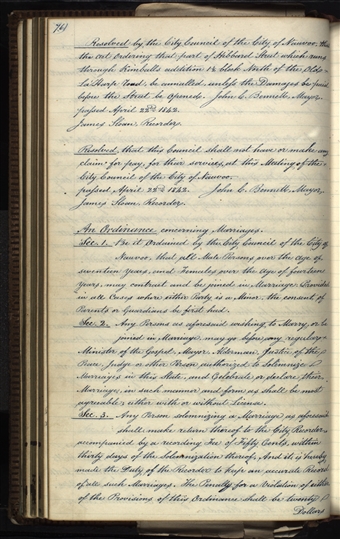 74)
Resolved by the City Council of the City of Nauvoo, that
the act ordering that part of Hibbard Street which runs
through Kimball's addition 1½ block North of the Old
La Harp road, be annulled, unless the Damages be paid
before the Street be opened. John C. Bennett, Mayor
passed April 22nd 1842.
James Sloan, Recorder.
Resolved, that this Council shall not have or make any
claim for pay, for their services, at this Meeting of the
City Council of the City of Nauvoo.
passed April 22nd 1842. John C. Bennett, Mayor
James Sloan, Recorder.
An Ordinance concerning Marriages.
Sec. 1. Be it Ordained by the City Council of the City of
Nauvoo, that all Male Persons over the Age of
seventeen Years, and Females over the Age of fourteen
Years, may contract and be joined in Marriage, Provided
in all Cases where either Party is a Minor, the consent of
Parents or Guardians be first had.
Sec. 2. Any Persons as aforesaid wishing to Marry, or be
joined in Marriage, may go before any regular
Minister of the Gospel, Mayor, Alderman, Justice of the
Peace, Judge, or other Person authorized to Solemnize
Marriages in this State, and Celebrate or declare their
Marriage, in such manner and form as shall be most
agreeable, either with or without License.
Sec. 3. Any Person solemnizing a Marriage as aforesaid
shall make return thereof to the City Recorder,
accompanied by a recording Fee of Fifty Cents, within
thirty days of the Solemnization thereof, And it is hereby
made the Duty of the Recorder to keep an accurate Record
of all such Marriages. The Penalty for a Violation of either
of the Provisions of this Ordinance shall be twenty
Dollars